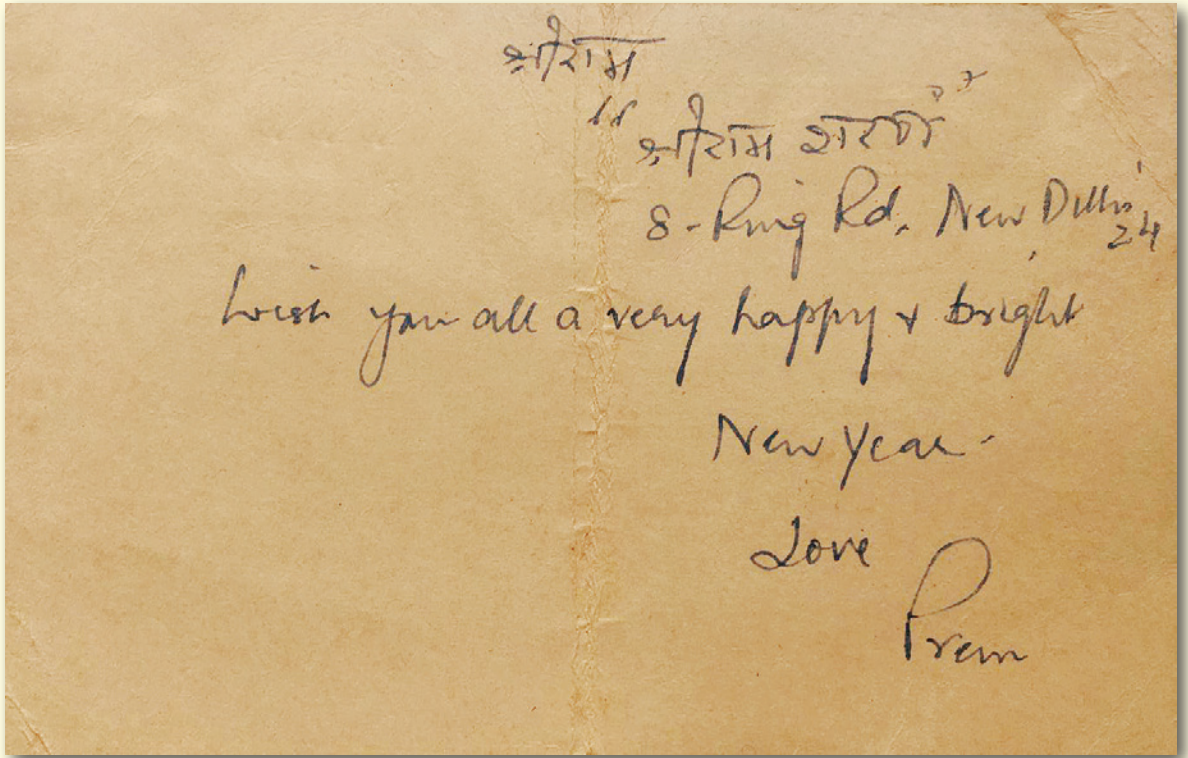 श्रीराम
“श्रीराम शरणं”
8-Ring Rd. New Delhi
24
Wish you all a very happy & bright
New Year.
Love
Prem